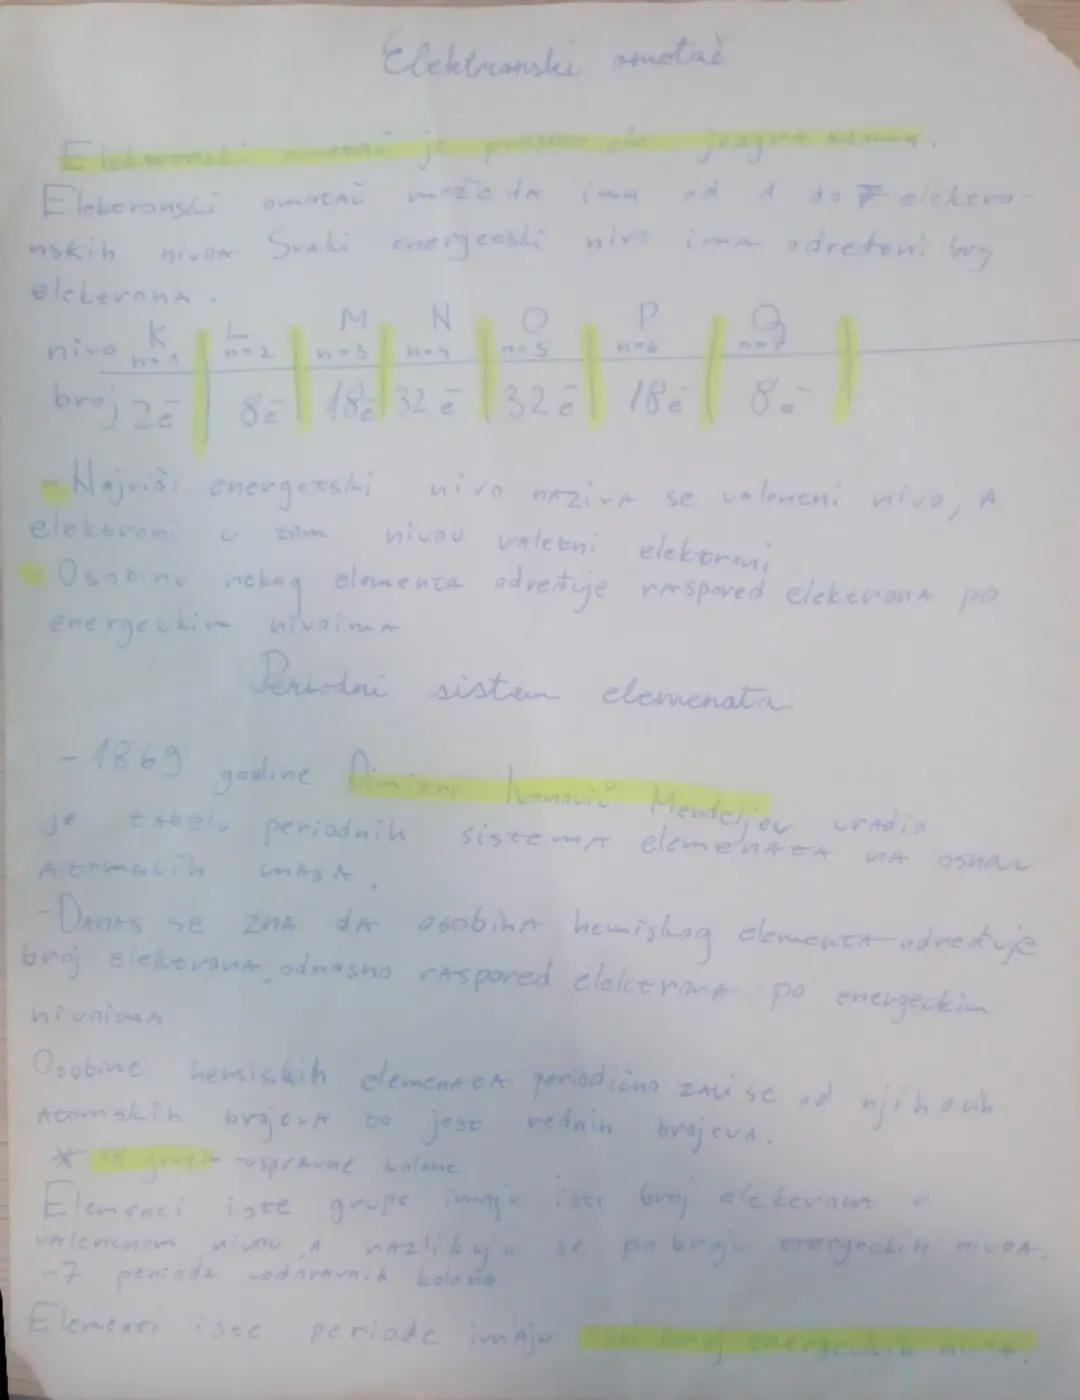 Elektronski omotač
Elektronski omotač je prostor oko jezgra atoma.
Elektronski omotač može da ima od 1 do 7 elektro-
nskih nivoa Svaki energetski nivo ima određeni broj
elektrona.
K L M N O P Q
nivo n=1 n=2 n=3 n=4 n=5 n=6 n=7
broj 2e⁻ 8e⁻ 18e⁻ 32e⁻ 32e⁻ 18e⁻ 8e⁻
- Najviši energetski nivo naziva se valentni nivo, a
elektroni u tom nivou valetni elektroni
- Osobine nekog elementa određuje raspored elektrona po
energeckim nivoima
Periodni sistem elemenata
- 1869 godine Dimitri Ivanovič Mendeljev uradio
je tabelu periodnih sistema elemenata na osnovu
Atomskih masa.
- Danas se zna da osobina hemiskog elementa određuje
broj elektrona, odnosno raspored elektrona po energeckim
nivoima
Osobine hemiskih elemenata periodično zavise od njihovih
Atomskih brojeva to jest rednih brojeva.
* 18 grupa - uspravne kolone
Elementi iste grupe imaju isti broj elektrona u
valentnom nivou, a razlikuju se po broju energeckih nivoa.
- 7 perioda - vodoravnih kolona
Elementi iste periode imaju isti broj energeckih nivoa.